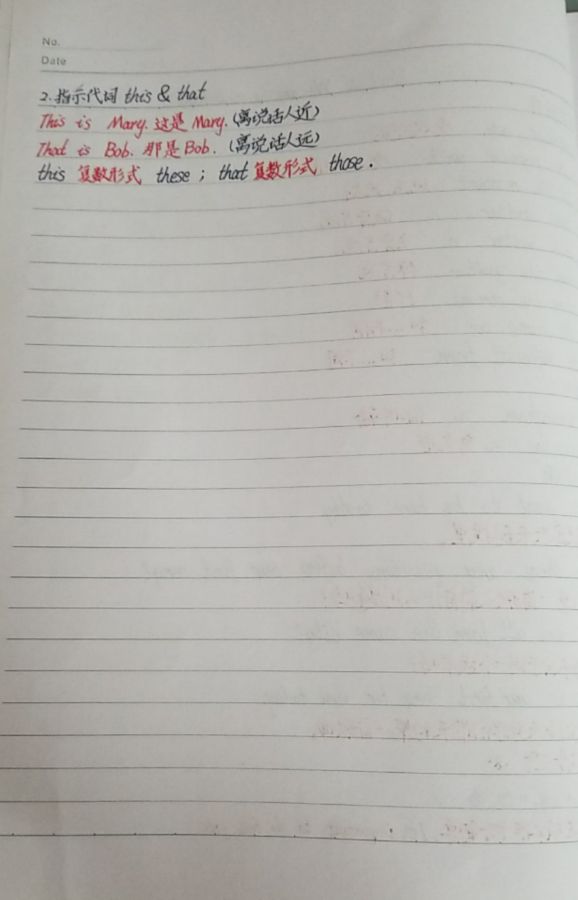 No.
Date
2.指示代词 this & that
This is Mary. 这是 Mary. (离说话人近)
That is Bob. 那是 Bob. (离说话人远)
this 复数形式 these ; that 复数形式 those .